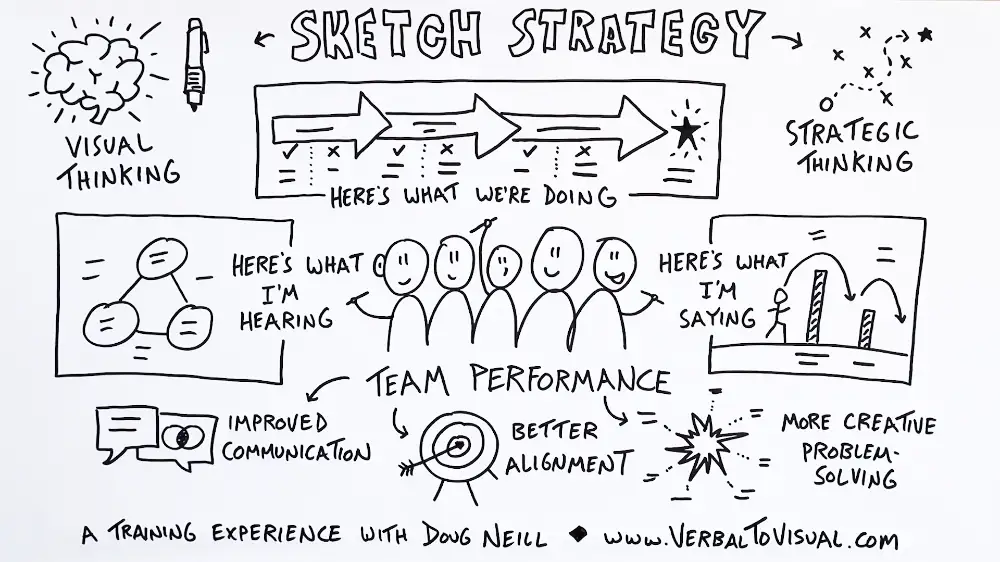 SKETCH STRATEGY
VISUAL
THINKING
STRATEGIC
THINKING
HERE'S WHAT WE'RE DOING
HERE'S WHAT
I'M
HEARING
HERE'S WHAT
I'M
SAYING
TEAM PERFORMANCE
IMPROVED
COMMUNICATION
BETTER
ALIGNMENT
MORE CREATIVE
PROBLEM-
SOLVING
A TRAINING EXPERIENCE WITH DOUG NEILL ◆ WWW.VERBALTOVISUAL.COM